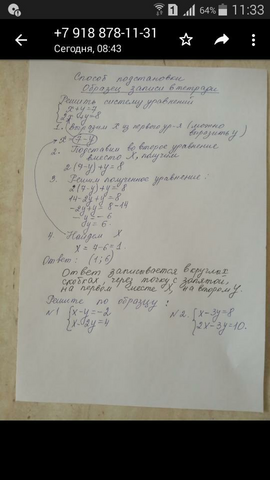 64% 11:33
+7 918 878-11-31
Сегодня, 08:43
Способ подстановки
Образец записи в тетради
Решить систему уравнений
x+y=7
2x+y=8
1. (Выразим x из первого ур-я (можно
выразить y)
x=(7-y)
2. Подставим во второе уравнение
вместо X, получим
2(7-y)+y=8
3. Решим полученное уравнение:
2(7-y)+y=8
14-2y+y=8
-2y+y=8-14
-y=-6
y=6
4. Найдем X
x=7-6=1
Ответ: (1;6)
Ответ записывается в круглых
скобках, через точку с запятой,
на первом месте X, на втором y.
Решите по образцу:
N1 x-y=-2 N2. x-3y=8
x-2y=4 2x-3y=10.